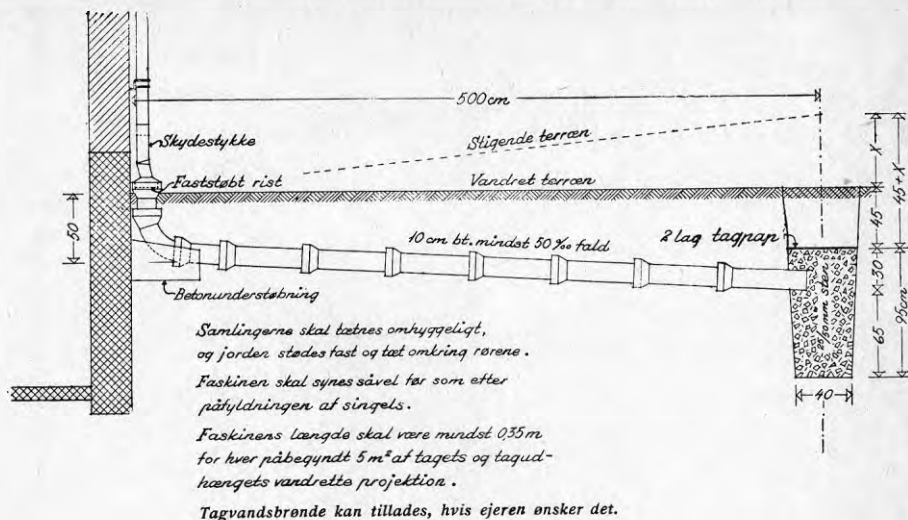 500 cm
Skydestykke
Stigende terræn
Faststøbt rist
Vandret terræn
X
45+X
50
45
10 cm bt. mindst 50 ‰ fald
2 lag tagpap
30
95cm
65
Betonunderstøbning
mm sten
40
Samlingerne skal tætnes omhyggeligt,
og jorden stødes fast og tæt omkring rørene.
Faskinen skal synes såvel før som efter
påfyldningen af singels.
Faskinens længde skal være mindst 0,35 m
for hver påbegyndt 5 m² af tagets og tagud-
hængets vandrette projektion.
Tagvandsbrønde kan tillades, hvis ejeren ønsker det.